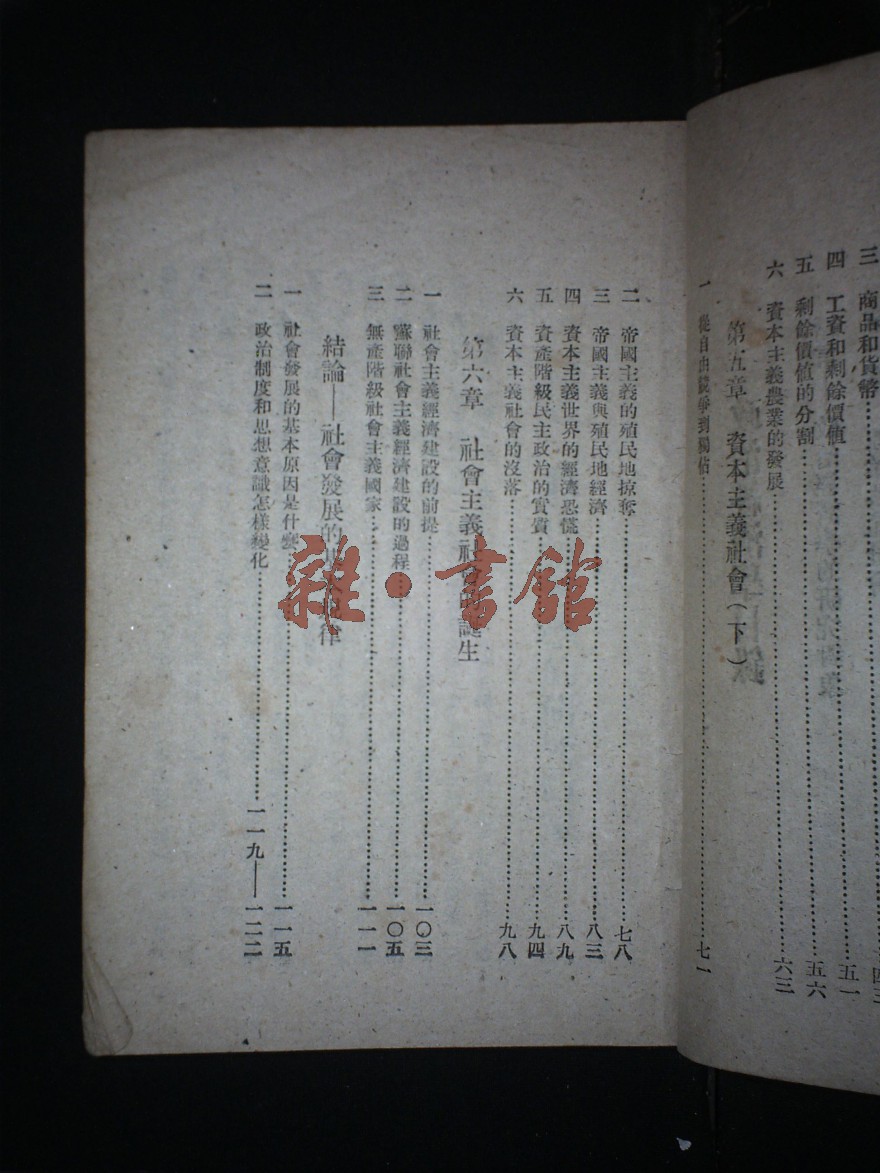 三 商品和貨幣……四三
四 工資和剩餘價値……五一
五 剩餘價値的分割……五六
六 資本主義農業的發展……六三
第五章 資本主義社會(下)
一 從自由競爭到獨佔……七一
二 帝國主義的殖民地掠奪……七八
三 帝國主義與殖民地經濟……八三
四 資本主義世界的經濟恐慌……八九
五 資產階級民主政治的實質……九四
六 資本主義社會的沒落……九八
第六章 社會主義社會的誕生
一 社會主義經濟建設的前提……一〇三
二 蘇聯社會主義經濟建設的過程……一〇五
三 無產階級社會主義國家……一一一
結論——社會發展的基本規律
一 社會發展的基本原因是什麼……一一五
二 政治制度和思想意識怎樣變化……一一九——一二二
雜·書館